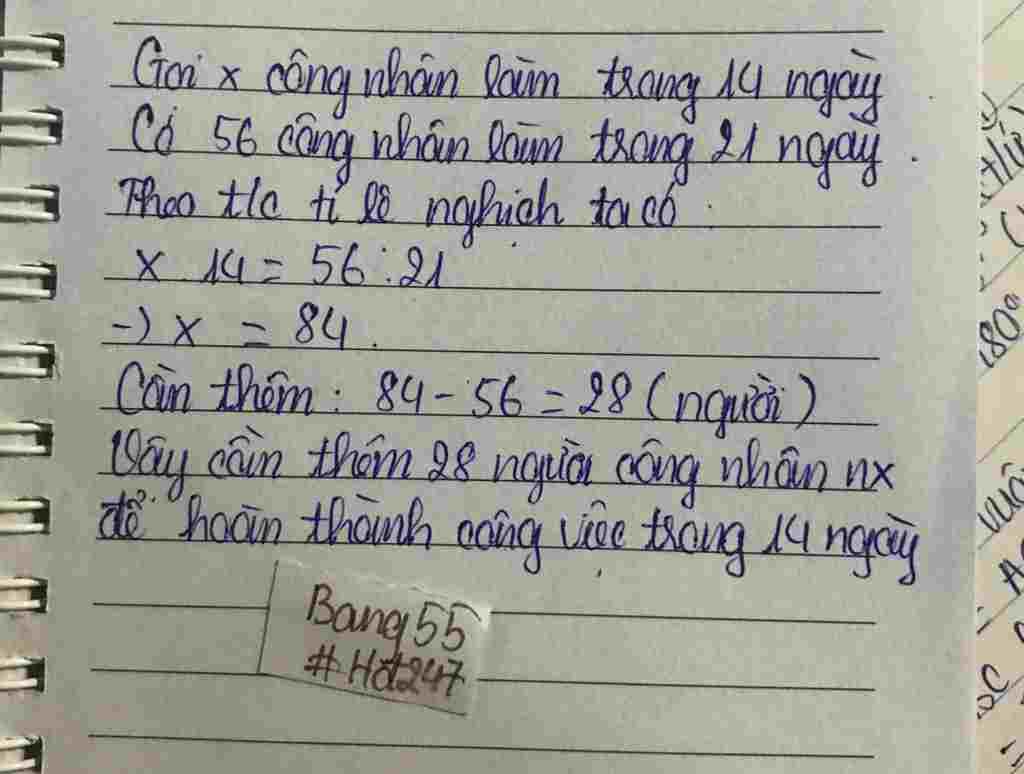 Gọi x công nhân làm trong 14 ngày
Có 56 công nhân làm trong 21 ngày.
Theo t/c tỉ lệ nghịch ta có:
x 14 = 56 : 21
-> x = 84.
Cần thêm: 84 - 56 = 28 (người)
Vậy cần thêm 28 người công nhân nx
để hoàn thành công việc trong 14 ngày
Bang55
#Hd247
180°